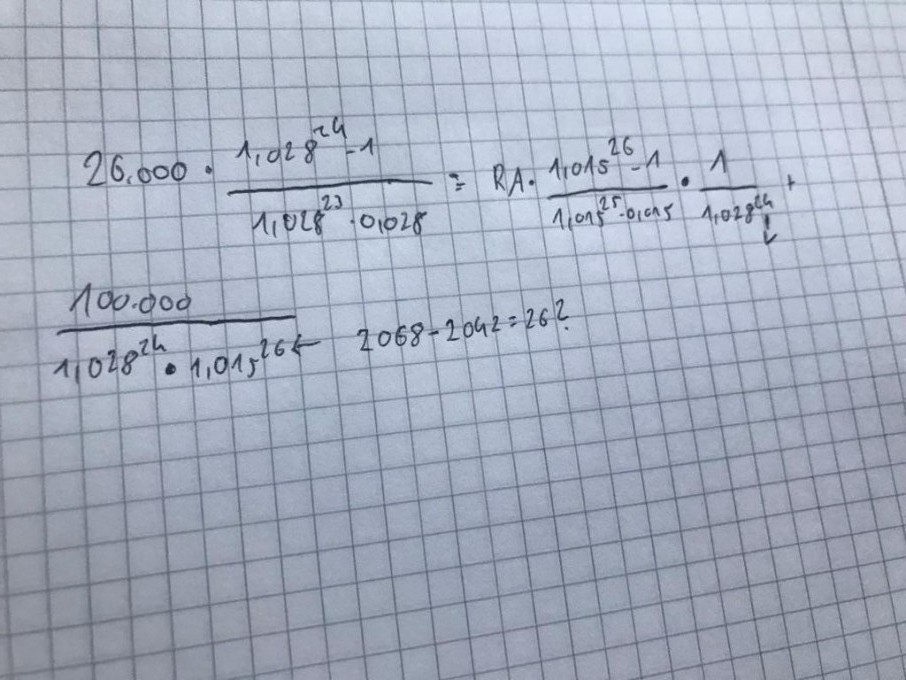 26.000 · (1,028^24 - 1) / (1,028^23 · 0,028) = RA · (1,015^26 - 1) / (1,015^25 · 0,015) · 1 / 1,028^24 +
100.000 / (1,028^24 · 1,015^26) ← 2068 - 2042 = 26?